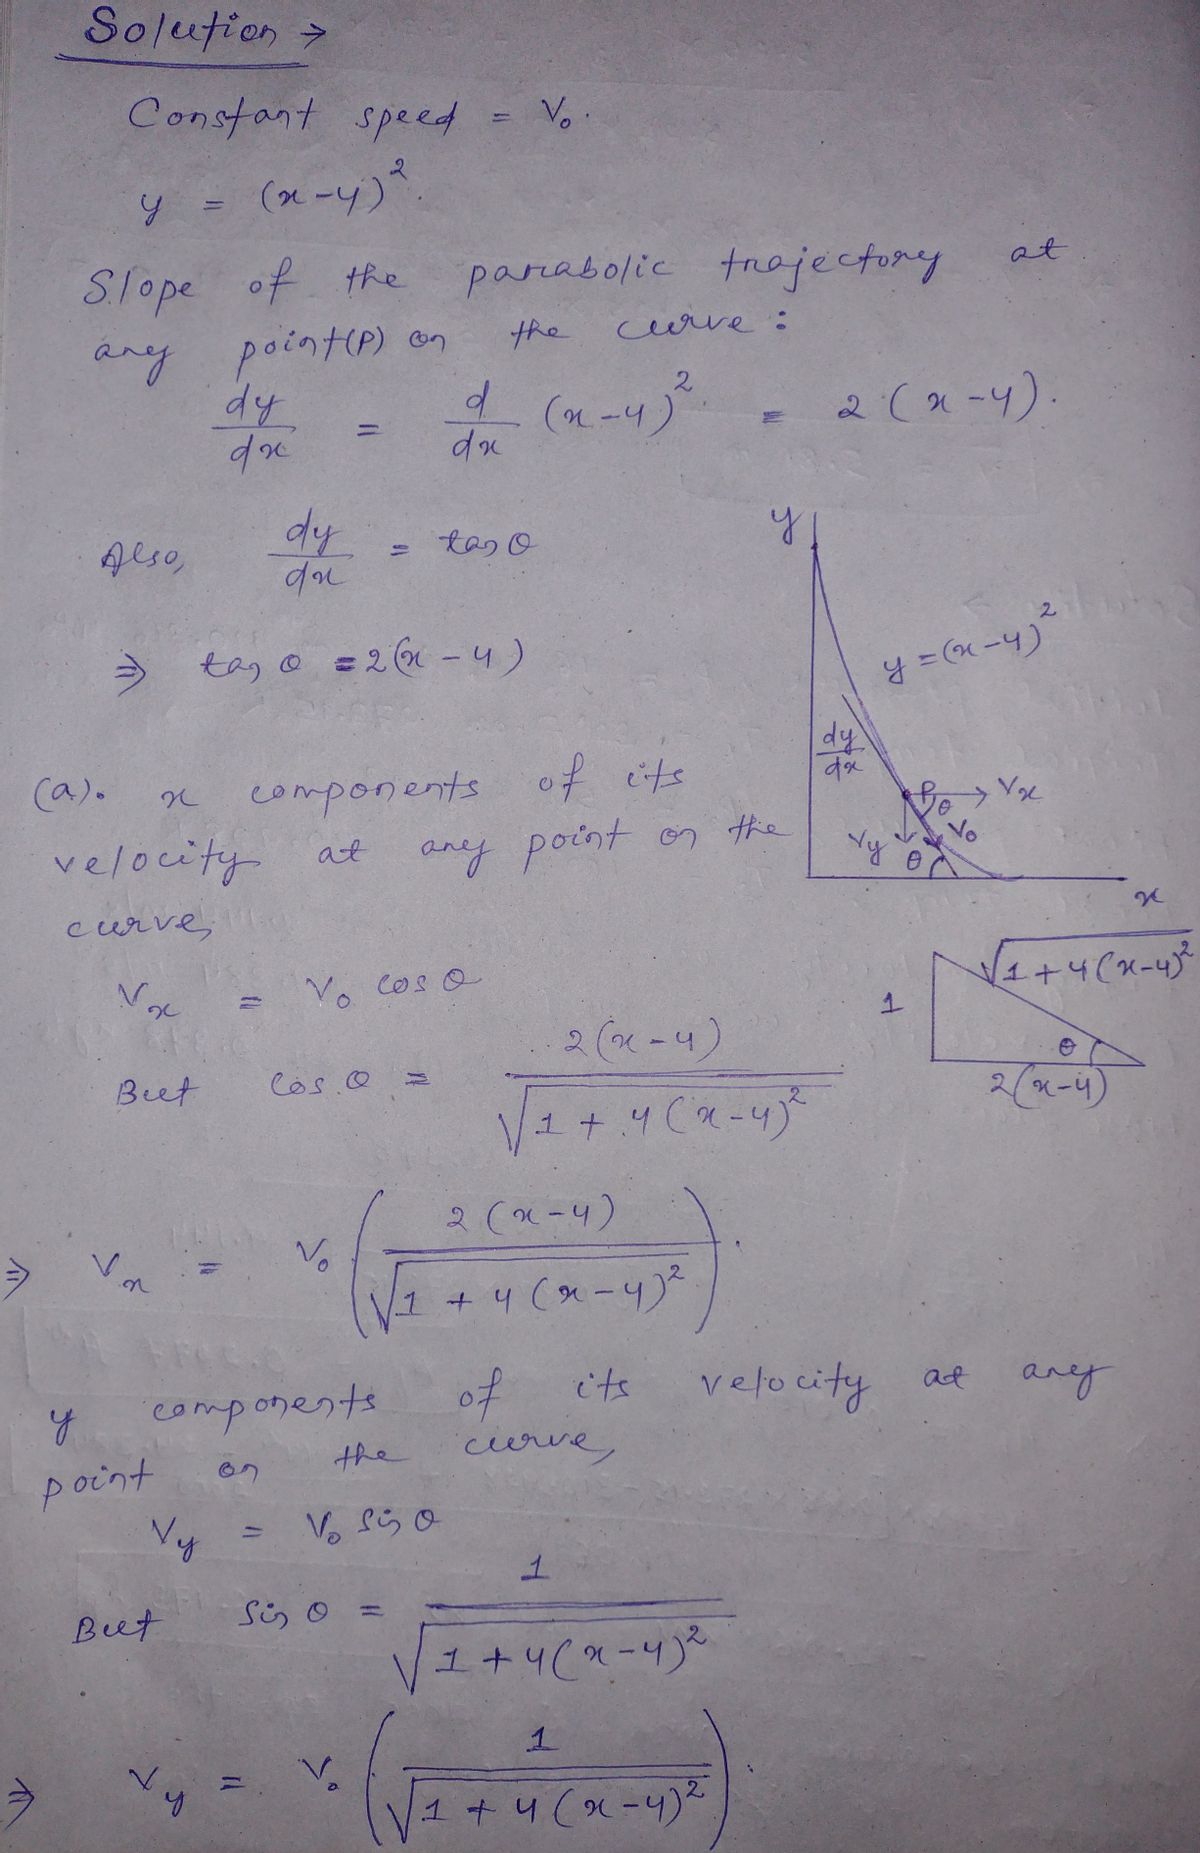 Solution →
Constant speed = V₀.
y = (x-4)².
Slope of the parabolic trajectory at
any point(P) on the curve :
dy/dx = d/dx (x-4)² = 2(x-4).
Also, dy/dx = tan θ
⇒ tan θ = 2(x-4)
y
y = (x-4)²
dy/dx
P θ Vx
Vy θ V₀
x
(a). x components of its
velocity at any point on the
curve,
Vx = V₀ cos θ
1 √(1+4(x-4)²)
θ
2(x-4)
But cos θ = 2(x-4)/√(1+4(x-4)²)
⇒ Vx = V₀ (2(x-4)/√(1+4(x-4)²)).
y components of its velocity at any
point on the curve,
Vy = V₀ sin θ
But sin θ = 1/√(1+4(x-4)²)
⇒ Vy = V₀ (1/√(1+4(x-4)²)).